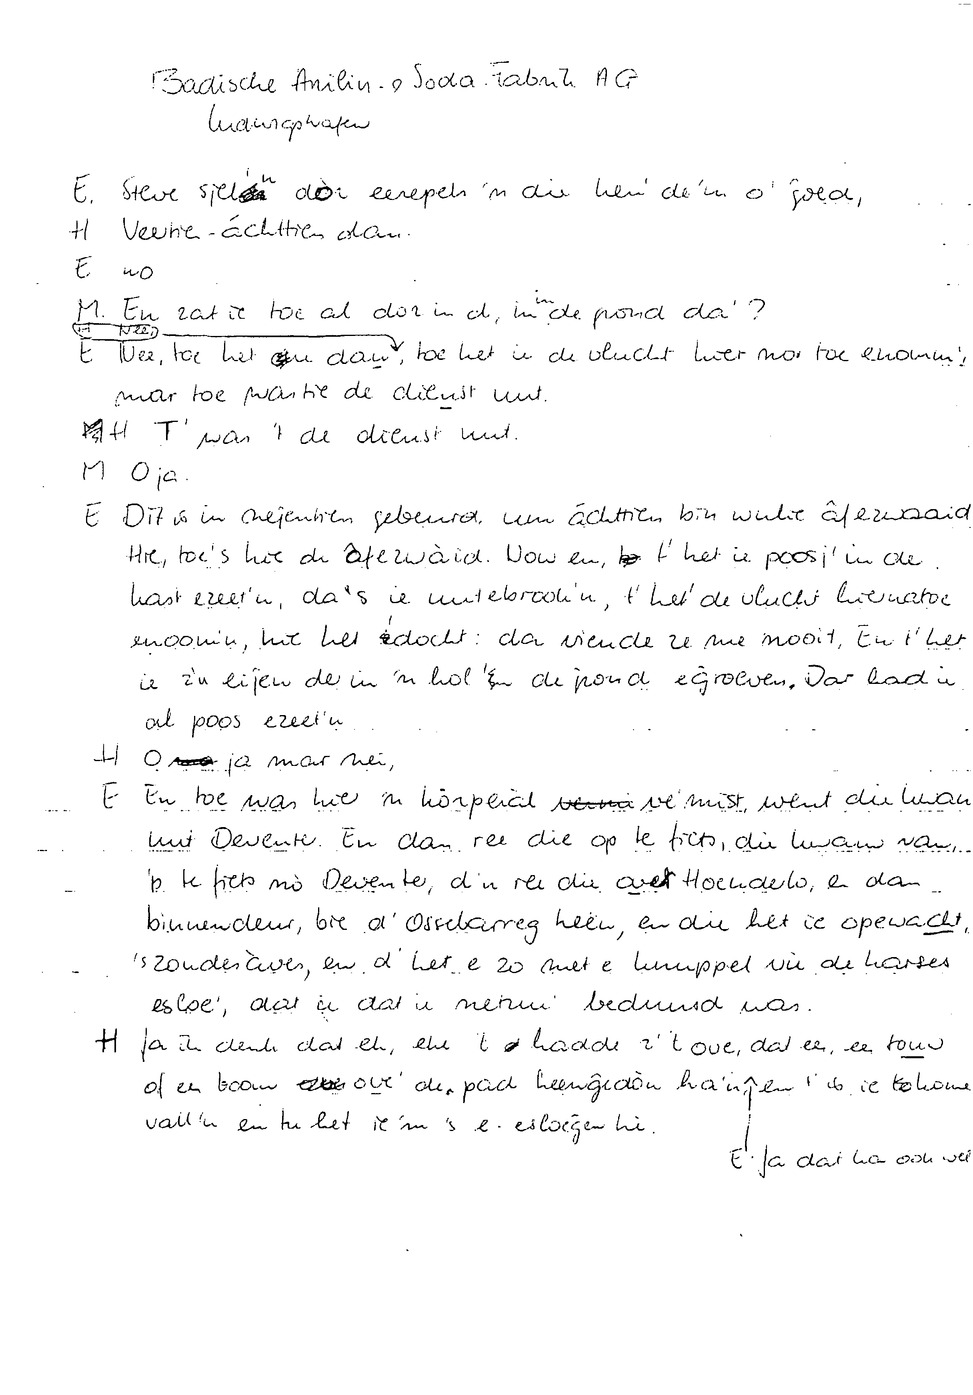 Badische Anilin- & Soda-Fabrik AG
Ludwigshafen
E. Steve dòr eerepels 'n die hen' de'm o' goed,
H Veertie-áchttien dan.
E no
M. En zat ie toe al dor in d, in de grond da'?
H Nee,
E Nee, toe het dan, toe het ie de vlucht hier nor toe enomm',
mar toe was tie de dienst uut.
H T' was 't de dienst uut.
M O ja.
E Dit is in nejentien gebeurd. um áchttien bin wulie âfezwaaid
Hie, toe's hie dr âfezwàid. Now en, t' het ie poos j' in de
kast ezeet'n, da's ie uutebrook'n, t' het de vlucht hiernatoe
enoomm, hie het edocht: da viende ze me nooit, En t' het
ie z'n eijen de in 'n hol 'in de grond egroeven. Dor had ie
al poos ezeet'n
H O ja mar nei,
E En toe was hie 'n körperàl ve'mist, went die kwam
uut Devente. En dan ree die op te fiets, die kwam van,
'p te fiets nò Devente, d'n ree die over Hoenderlo, e dan
binnendeur, bie d' Ossebarreg heen, en die het ie opewacht,
's zondesàves, en d' het e zo met e knuppel vie de harses
esloe', dat ie dat ie meteen bedeusd was.
H Ja ik denk dat eh, ehe 't hadde z' 't ove, dat ee, ee touw
of ee boom ove' de pad heengedòn ha'n, en t' is ie tekomme
vall'n en tu het ie 'm 's e. eslogen hè.
E. Ja dat ka ook wel